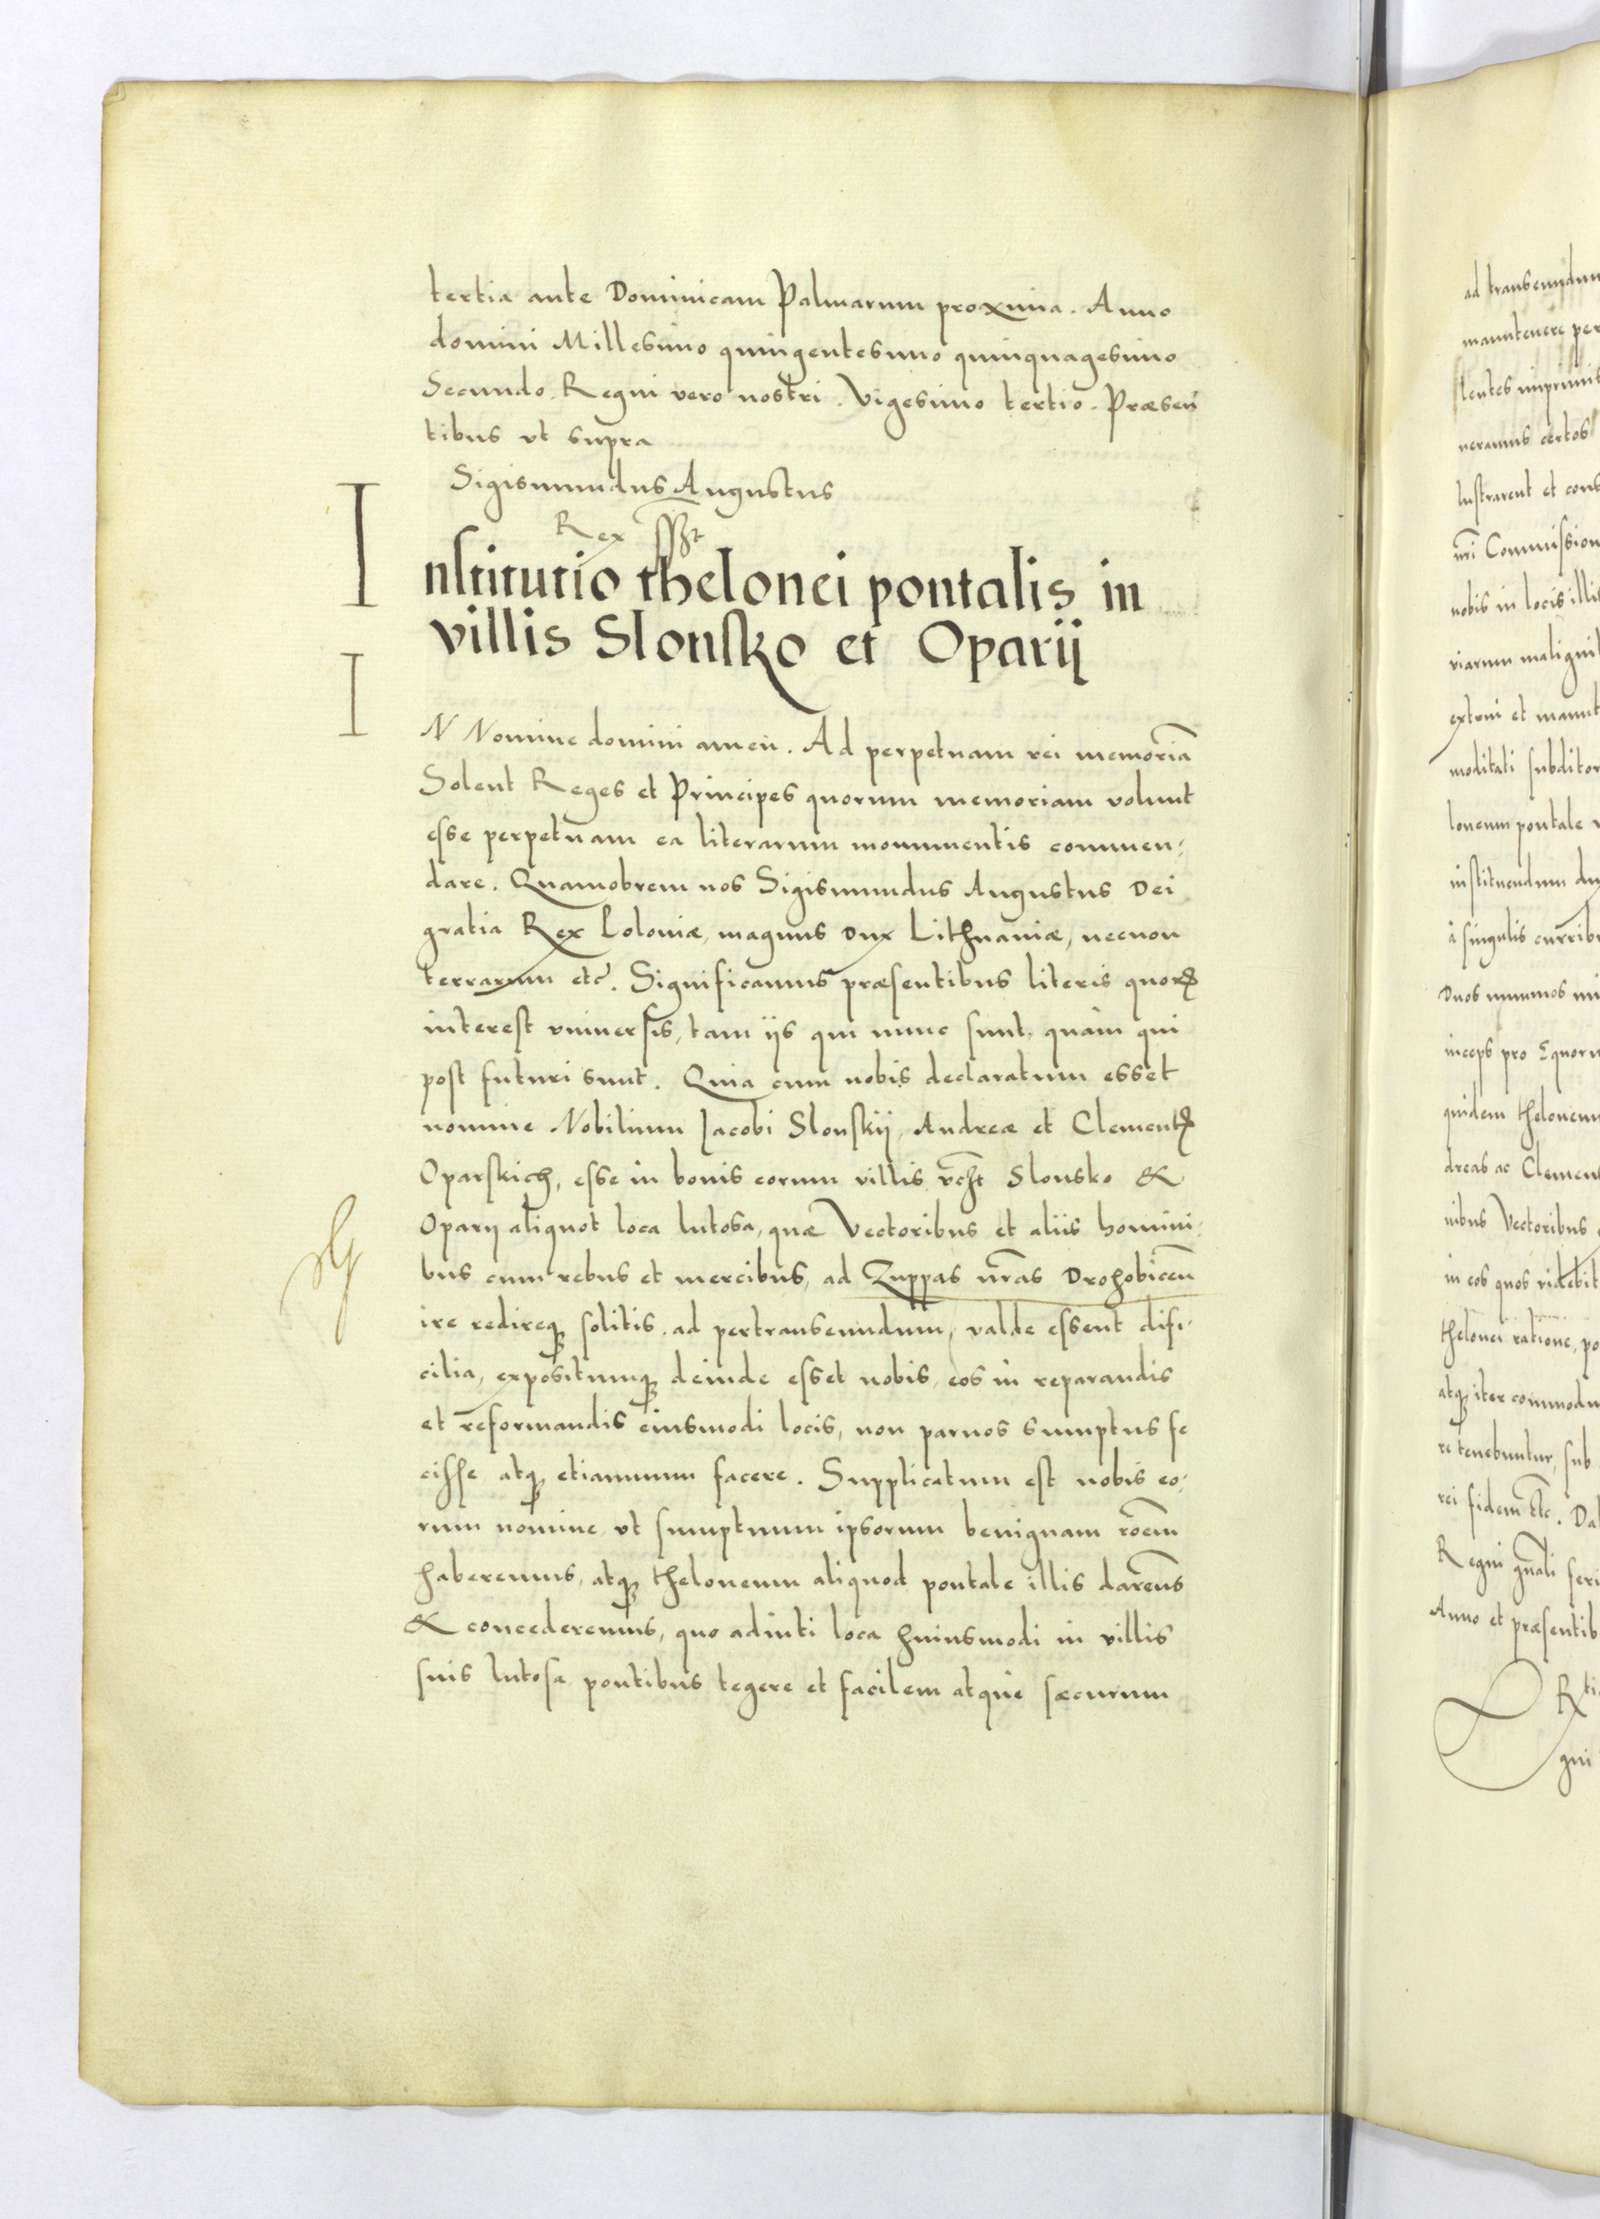 tertia ante Dominicam Palmarum proxima. Anno
domini Millesimo quingentesimo quinquagesimo
Secundo. Regni vero nostri. Vigesimo tertio. Præsen
tibus vt supra
Sigismundus Augustus
Rex sst
Institutio thelonei pontalis in
villis Slonsko et Oparij
IN Nomine domini amen. Ad perpetuam rei memoriã
Solent Reges et Principes quorum memoriam volunt
esse perpetuam ea literarum monumentis commen,
dare. Quamobrem nos Sigismundus Augustus Dei
gratia Rex Poloniæ, magnus Dux Lithuaniæ, necnon
terrarum etc̃. Significamus præsentibus literis quorꝝ
interest vniuersis, tam ijs qui nunc sunt, quàm qui
post futuri sunt. Quia cum nobis declaratum esset
nomine Nobilium Jacobi Slonskij, Andreæ et Clementꝭ
Oparskich, esse in bonis eorum villis vc̃ȝt Slonsko &
Oparij aliquot loca lutosa, quæ Vectoribus et aliis homini,
bus cum rebus et mercibus, ad Zuppas nr̃as Drohobiceñ
ire redireqȝ solitis, ad pertranseundum, valde essent difi,
cilia, expositumqȝ deinde esset nobis, eos in reparandis
et reformandis eiusmodi locis, non paruos sumptus fe
cisse atqȝ etiamnum facere. Supplicatum est nobis eo,
rum nomine vt sumptuum ipsorum benignam rõem
haberemus, atqȝ theloneum aliquod pontale illis darem̃s
& concederemus, quo adiuti loca huiusmodi in villis
suis lutosa pontibus tegere et facilem atque sæcurum
ad transeundum
manutenere per
neramus certos
lustrarent et cons
nr̃i Commission
nobis in locis illis
riarum malignit
extrui et manut
moditati subditor
loneum pontale
instituendum du
à singulis currib
Duos nummos
inceps pro equorum
quidem theloneum
dreas ac Clement
nibus Vectoribus
in eos quos videbit
thelonei ratione, po
atqȝ iter commodu
re tenebuntur, sub
rei fidem etc̃. Dat
Regni gñali
Anno et præsentib
gni